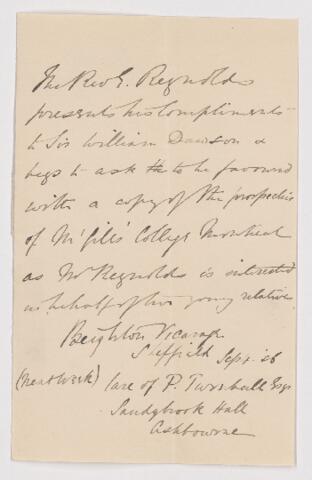 The Rev G. Reynolds
presents his Compliments
to Sir William Dawson &
begs to ask to be favored
with a copy of the prospectus
of McGill's College Montreal
as Mr Reynolds is interested
in behalf of two young relatives.
Beighton Vicarage
Sheffield Sept. 26
(next week) Care of P. Turnbull Esq
Sandybrook Hall
Ashbourne